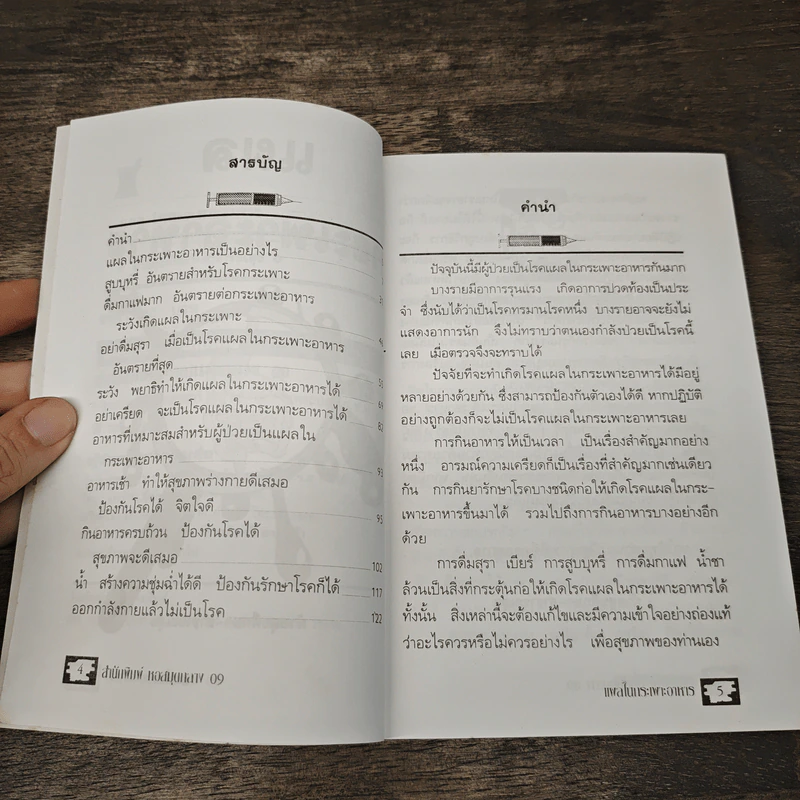 สารบัญ
คำนำ
แผลในกระเพาะอาหารเป็นอย่างไร
สูบบุหรี่ อันตรายสำหรับโรคกระเพาะ
ดื่มกาแฟมาก อันตรายต่อกระเพาะอาหาร
ระวังเกิดแผลในกระเพาะ
อย่าดื่มสุรา เมื่อเป็นโรคแผลในกระเพาะอาหาร
อันตรายที่สุด
ระวัง พยาธิทำให้เกิดแผลในกระเพาะอาหารได้
อย่าเครียด จะเป็นโรคแผลในกระเพาะอาหารได้
อาหารที่เหมาะสมสำหรับผู้ป่วยเป็นแผลใน
กระเพาะอาหาร 93
อาหารเช้า ทำให้สุขภาพร่างกายดีเสมอ
ป้องกันโรคได้ จิตใจดี 95
กินอาหารครบถ้วน ป้องกันโรคได้
สุขภาพจะดีเสมอ 102
น้ำ สร้างความชุ่มฉ่ำได้ดี ป้องกันรักษาโรคก็ได้ 117
ออกกำลังกายแล้วไม่เป็นโรค 122
4 สำนักพิมพ์ หอสมุดกลาง 09
คำนำ
ปัจจุบันนี้มีผู้ป่วยเป็นโรคแผลในกระเพาะอาหารกันมาก
บางรายมีอาการรุนแรง เกิดอาการปวดท้องเป็นประ
จำ ซึ่งนับได้ว่าเป็นโรคทรมานโรคหนึ่ง บางรายอาจจะยังไม่
แสดงอาการนัก จึงไม่ทราบว่าตนเองกำลังป่วยเป็นโรคนี้
เลย เมื่อตรวจจึงจะทราบได้
ปัจจัยที่จะทำเกิดโรคแผลในกระเพาะอาหารได้มีอยู่
หลายอย่างด้วยกัน ซึ่งสามารถป้องกันตัวเองได้ดี หากปฏิบัติ
อย่างถูกต้องก็จะไม่เป็นโรคแผลในกระเพาะอาหารเลย
การกินอาหารให้เป็นเวลา เป็นเรื่องสำคัญมากอย่าง
หนึ่ง อารมณ์ความเครียดก็เป็นเรื่องที่สำคัญมากเช่นเดียว
กัน การกินยารักษาโรคบางชนิดก่อให้เกิดโรคแผลในกระ-
เพาะอาหารขึ้นมาได้ รวมไปถึงการกินอาหารบางอย่างอีก
ด้วย
การดื่มสุรา เบียร์ การสูบบุหรี่ การดื่มกาแฟ น้ำชา
ล้วนเป็นสิ่งที่กระตุ้นก่อให้เกิดโรคแผลในกระเพาะอาหารได้
ทั้งนั้น สิ่งเหล่านี้จะต้องแก้ไขและมีความเข้าใจอย่างถ่องแท้
ว่าอะไรควรหรือไม่ควรอย่างไร เพื่อสุขภาพของท่านเอง
แผลในกระเพาะอาหาร 5